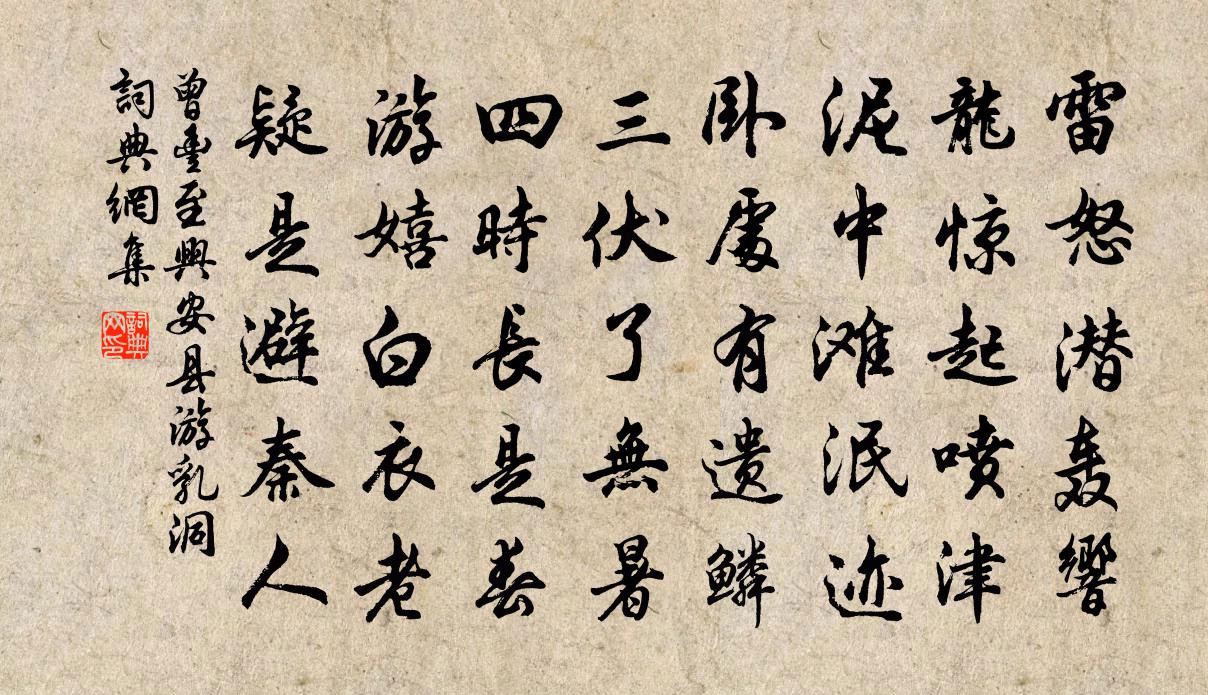 雷怒潜轰響
龍惊起喷津
泥中滩泯迹
卧處有遗鳞
三伏了無暑
四時長是春
游嬉白衣老
疑是避秦人
曾豊至興安县游乳洞
詞典網集
詞典网印